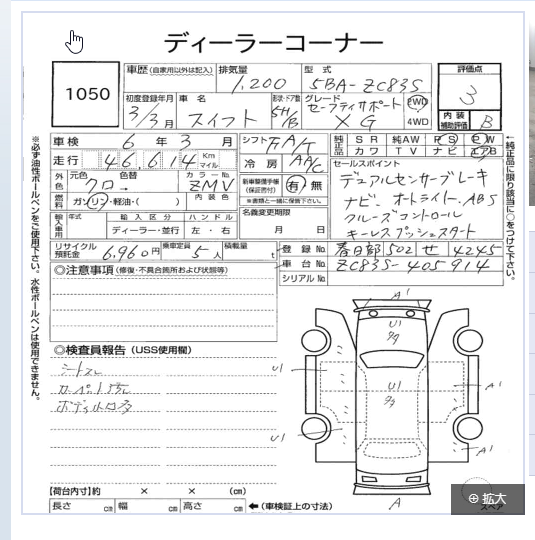 ディーラーコーナー
1050
車歴 (自家用以外は記入) 排気量 型式 評価点
1,200 5BA-ZC83S 3
初度登録年月 車名 形状・ドア数 グレード
3/3月 スイフト 5H/B セーフティサポート XG 2WD 4WD
内装補助評価 B
車検 6年3月 シフト FA/T
純正品 SR 純AW PS PW
カワ TV ナビ エアB
走行 46,614 Km マイル 冷房 AA/C
セールスポイント
外色 元色 色替 カラーNo.
クロ→ ZMV
新車整備手帳(保証書付) 有・無
※書類と一緒に保管下さい。
デュアルセンサーブレーキ
ナビ、オートライト、ABS
クルーズコントロール
キーレスプッシュスタート
燃料 ガソリン・軽油・( ) 内装色
名義変更期限
月 日
輸入車用 年式 輸入区分 ハンドル
ディーラー・並行 左・右
リサイクル預託金 6,960円 乗車定員 5人 積載量 t
登録No. 春日部 502 せ 4245
車台No. ZC83S-405914
シリアルNo.
◎注意事項 (修復・不具合箇所および状態等)
◎検査員報告 (USS使用欄)
シートスレ
ボディ小口多
A1
U1
U1
U1
A1
U1
A1
A
【荷台内寸】約 × × (cm)
長さ cm 幅 cm 高さ cm ←(車検証上の寸法)
スペア
拡大
※必ず油性ボールペンをご使用下さい。水性ボールペンは使用できません。
←純正品に限り該当に○をつけて下さい。